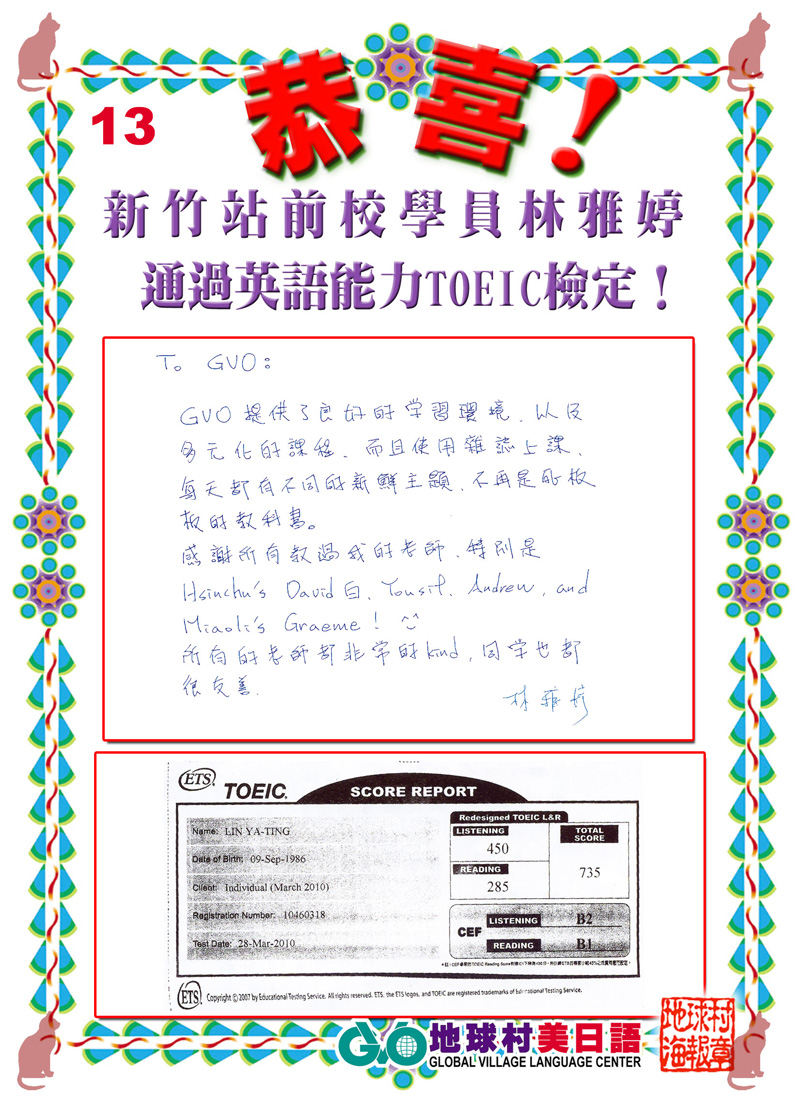 恭喜！
13
新竹站前校學員林雅婷
通過英語能力TOEIC檢定！
To GVO：
GVO 提供了良好的学習環境、以及
多元化的課程、而且使用雜誌上課、
每天都有不同的新鮮主題、不再是死板
板的教科書。
感謝所有教過我的老師、特別是
Hsinchu's David白、Yousif、Andrew, and
Miaoli's Graeme!
所有的老師都非常的kind, 同学也都
很友善.
林雅婷
ETS TOEIC SCORE REPORT
Name: LIN YA-TING
Date of Birth: 09-Sep-1986
Client: Individual (March 2010)
Registration Number: 10460318
Test Date: 28-Mar-2010
Redesigned TOEIC L&R
LISTENING
450
READING
285
TOTAL SCORE
735
CEF
LISTENING B2
READING B1
ETS Copyright © 2007 by Educational Testing Service. All rights reserved. ETS, the ETS logos, and TOEIC are registered trademarks of Educational Testing Service.
GVO 地球村美日語
GLOBAL VILLAGE LANGUAGE CENTER
地球村
海報章